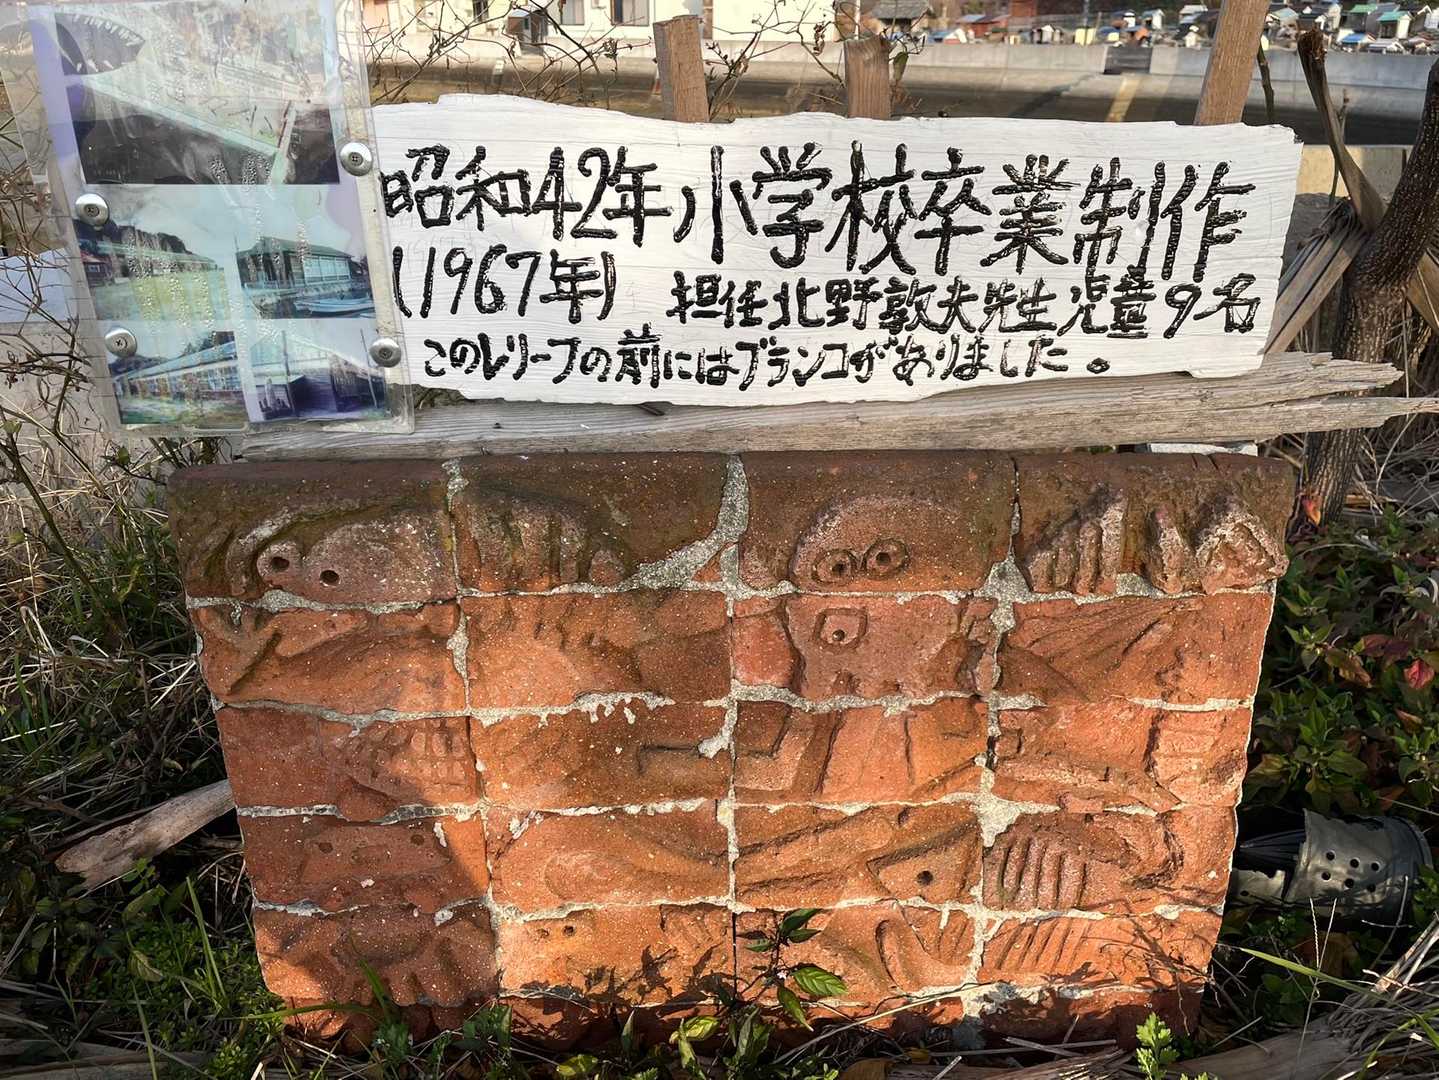 昭和42年小学校卒業制作
(1967年) 担任北野敦夫先生児童9名
このレリーフの前にはブランコがありました。